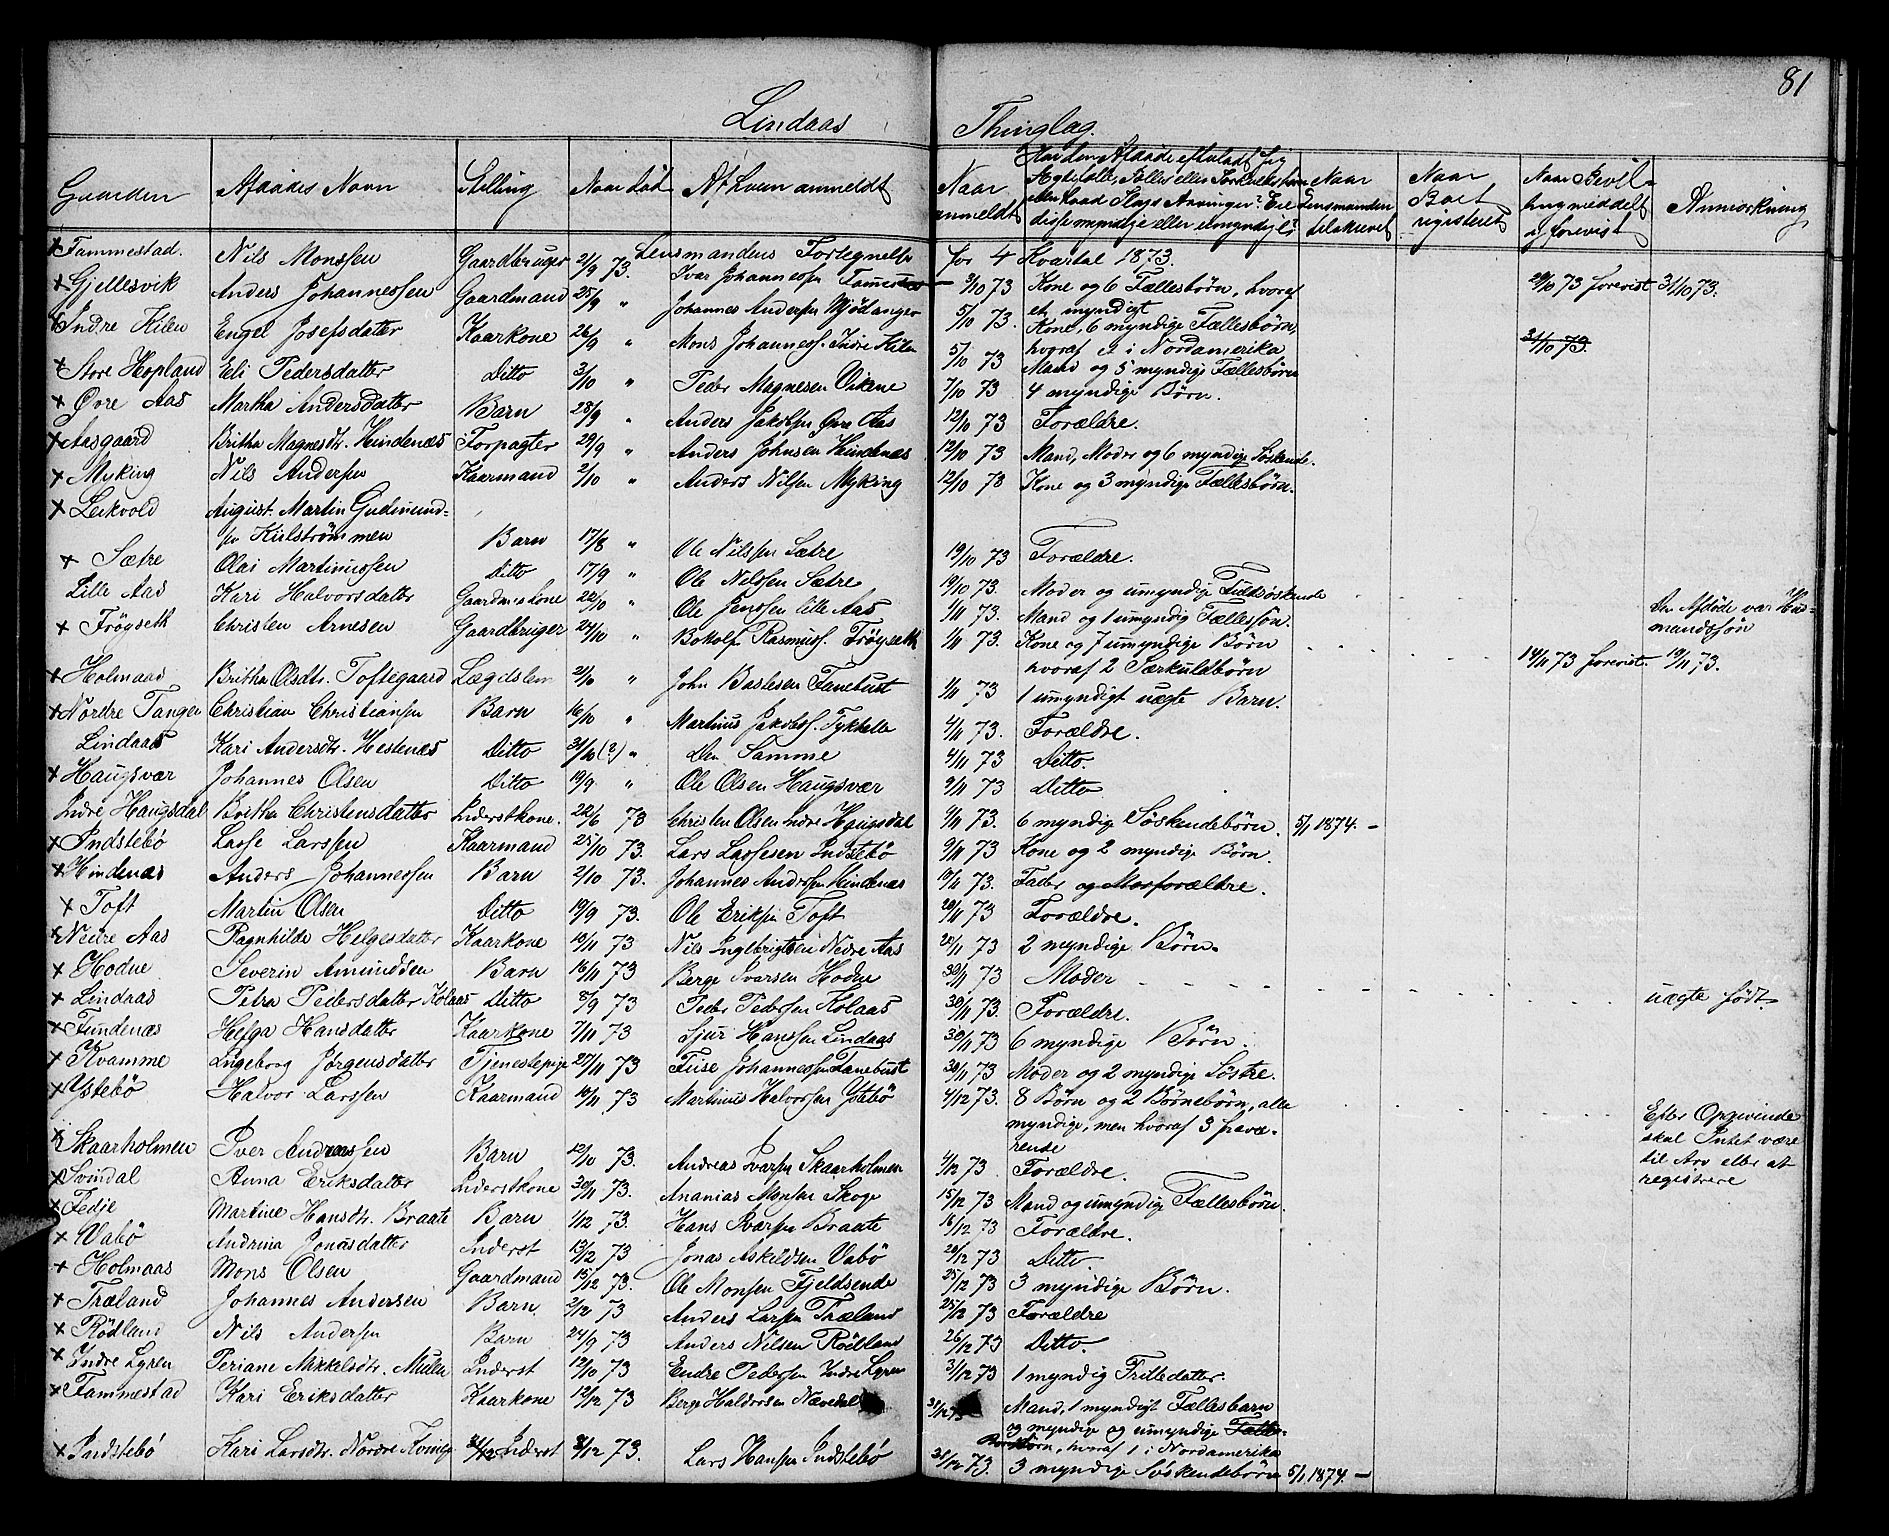 81
Lindaas Thinglag.
Gaarden Afdødes Navn Stilling Naar død Af hvem anmeldt Naar anmeldt Har den Afdøde efterladt sig Ægtefælle, Fælles eller Særkuldsbørn eller hvad Slags Arvinger? Ere disse myndige eller umyndige? Naar Lensmanden tilskrevet Naar Boet registreret Naar Bevilling meddelt og forevist Anmærkning
Lensmandens Fortegnelse for 4 Kvartal 1873.
x Fammestad. Nils Monssen Gaardbruger 21/9 73. Ivar Johannessen Famestad 3/10 73 Kone og 6 Fællesbörn, hvoraf et myndigt 29/10 73 forevist 31/10 73.
x Gjellesvik Anders Johannessen Gaardmand 25/9 " Johannes Andersen Mjödanger 5/10 73. Kone, 6 myndige Fællesbörn, hvoraf et i Nordamerika 31/10 73.
x Indre Kilen Engel Josefsdatter Kaarkone 26/9 " Mons Johanness. Indre Kilen 5/10 73 Mand og 5 myndige Fællesbörn
x Store Hopland Eli Pedersdatter Ditto 3/10 " Peder Magnesen Vikene 7/10 73 4 myndige Börn.
x Øvre Aas Martha Andersdatter Barn 28/9 " Anders Jakobsen Øvre Aas 12/10 73 Forældre.
x Aasgaard Britha Magnesdtr. Hindenæs Forpagter 29/9 " Anders Johnsen Hindenæs 12/10 73 Mand, Moder og 6 myndige Söskende.
x Myking Nils Andersen Kaarmand 2/10 " Anders Nilsen Myking 12/10 73 Kone og 3 myndige Fællesbörn.
x Leikvold August Martin Gudmundsen Kilströmmen Barn 17/8 " Ole Nilssen Sætre 19/10 73 Forældre.
x Sætre Olai Martinussen Ditto 17/9 " Ole Nilssen Sætre 19/10 73 Moder og umyndige Söskende
Lille Aas Kari Halvorsdatter Gaardmeskone 22/10 " Ole Jenssen lille Aas 1/11 73. Mand og 1 umyndig Fællessön. Den Afdöde var Husmandssön
x Fröyseth Christen Arnesen Gaardbruger 24/10 " Botolf Rasmuss. Fröyseth 1/11 73. Kone og 7 umyndige Börn hvoraf 2 Særkuldbörn 14/11 73 forevist 19/11 73.
x Holmaas Britha Olsdtr. Toftegaard Lægdslem 21/10 " John Baslesen Fanebust 1/11 73 1 umyndigt uægte Barn.
x Nordre Tangen Christian Christiansen Barn 16/10 " Martinus Jakobss. Tykhelle 4/11 73. Forældre.
Lindaas Kari Andersdtr. Hestenæs Ditto 31/10 (?) " Den Samme 4/11 73 Ditto.
x Haugsvær Johannes Olsen Ditto 19/9 " Ole Olsen Haugsvær 9/11 73 Ditto
Indre Haugsdal Britha Christensdatter Inderstkone. 22/6 73 Christen Olsen Indre Haugsdal 9/11 73. 6 myndige Söskendebörn. 5/1 1874. -
x Indstebö Lasse Larssen Kaarmand 25/10 73. Lars Lassesen Indstebö 9/11 73 Kone og 2 myndige Börn.
x Hindenæs Anders Johannessen Barn 2/10 73. Johannes Andersen Hindenæs 19/11 73. Fader og Morforældre.
x Toft Martin Olsen Ditto 19/9 73. Ole Eriksen Toft 20/11 73 Forældre.
x Nedre Aas Ragnhilde Helgesdatter Kaarkone 19/11 73 Nils Ingebrigtsen Nedre Aas 20/11 73 2 myndige Börn.
x Hodne Severin Amundsen Barn 16/11 73 Berge Iversen Hodne 30/11 73 Moder uægte født
x Lindaas Petra Pedersdatter Kolaas Ditto 8/9 73 Peder Pedersen Kolaas 30/11 73. Forældre.
x Fundenæs Helga Hansdatter Kaarkone 7/11 73 Sjur Hanssen Lindaas 30/11 73 6 myndige Börn.
x Kvamme Ingeborg Jörgensdatter Tjenestepige 27/11 73 Johannessen Fanebust 30/11 73 Moder og 2 myndige Söstre.
x Ystebö Halvor Larssen Kaarmand 10/11 73 Martinus Halvorsen Ystebö 4/12 73. 8 Börn og 2 Börnebörn, alle myndige, men hvoraf 3 fraværende Efter Opgivende skal Intet være til Arv eller at registrere
x Skaarholmen Iver Andreassen Barn 12/10 73. Andreas Ivarsen Skaarholmen 4/12 73. Forældre.
x Svindal Anna Eriksdatter Inderstkone 30/11 73. Ananias Monsen Skoge 15/12 73 Mand og umyndig Fællesbörn.
x Fedje Martine Hansdtr. Braate Barn 1/12 73. Hans Ivarsen Braate 16/12 73 Forældre.
x Vabö Andrina Jonasdatter Inderst 13/12 73 Jonas Askildsen Vabö 20/12 73 Ditto.
x Holmaas Mons Olsen Gaardmand 15/12 73. Ole Monsen Fjeldsende 25/12 73 3 myndige Börn.
x Træland Johannes Andersen Barn 2/12 73 Anders Larsen Træland 25/12 73 Forældre
x Rödland Nils Andersen Barn 24/9 73 Anders Nilsen Rödland 26/12 73 Ditto.
x Indre Lyren Periane Mikkelsdtr. Mulen Inderst 19/10 73 Endre Pedersen Indre Lyren 31/12 73 1 myndig Frilledatter.
x Fammestad Kari Eriksdatter Kaarkone 12/12 73 Berge Haldorsen Nævedal 31/12 73 Mand, 1 myndigt Fællesbarn og myndige og umyndige Börnebörn, hvoraf 1 i Nordamerika
x Indstebö Kari Larsdtr. Nordre Kvinge Inderst 31/12 73. Lars Hansen Indstebö 31/12 73. 3 myndige Söskendebörn 5/1 1874. -